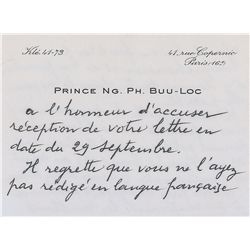 Klé. 41-73
41, rue Copernic
Paris-16e
PRINCE NG. PH. BUU-LOC
a l'honneur d'accuser
réception de votre lettre en
date du 29 Septembre.
Il regrette que vous ne l'ayez
pas rédigé en langue française